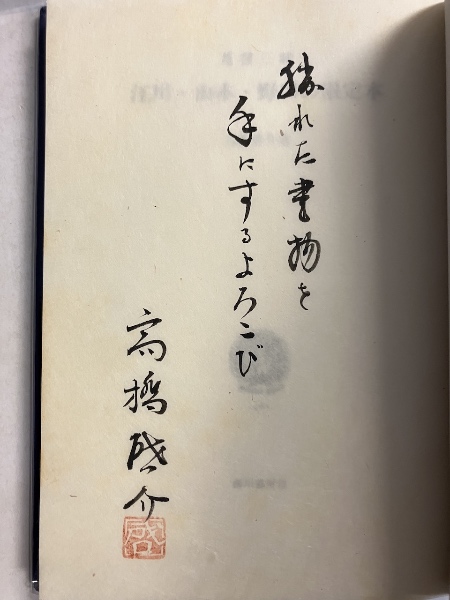 勝れた書物を
手にするよろこび
高橋啓介
啓